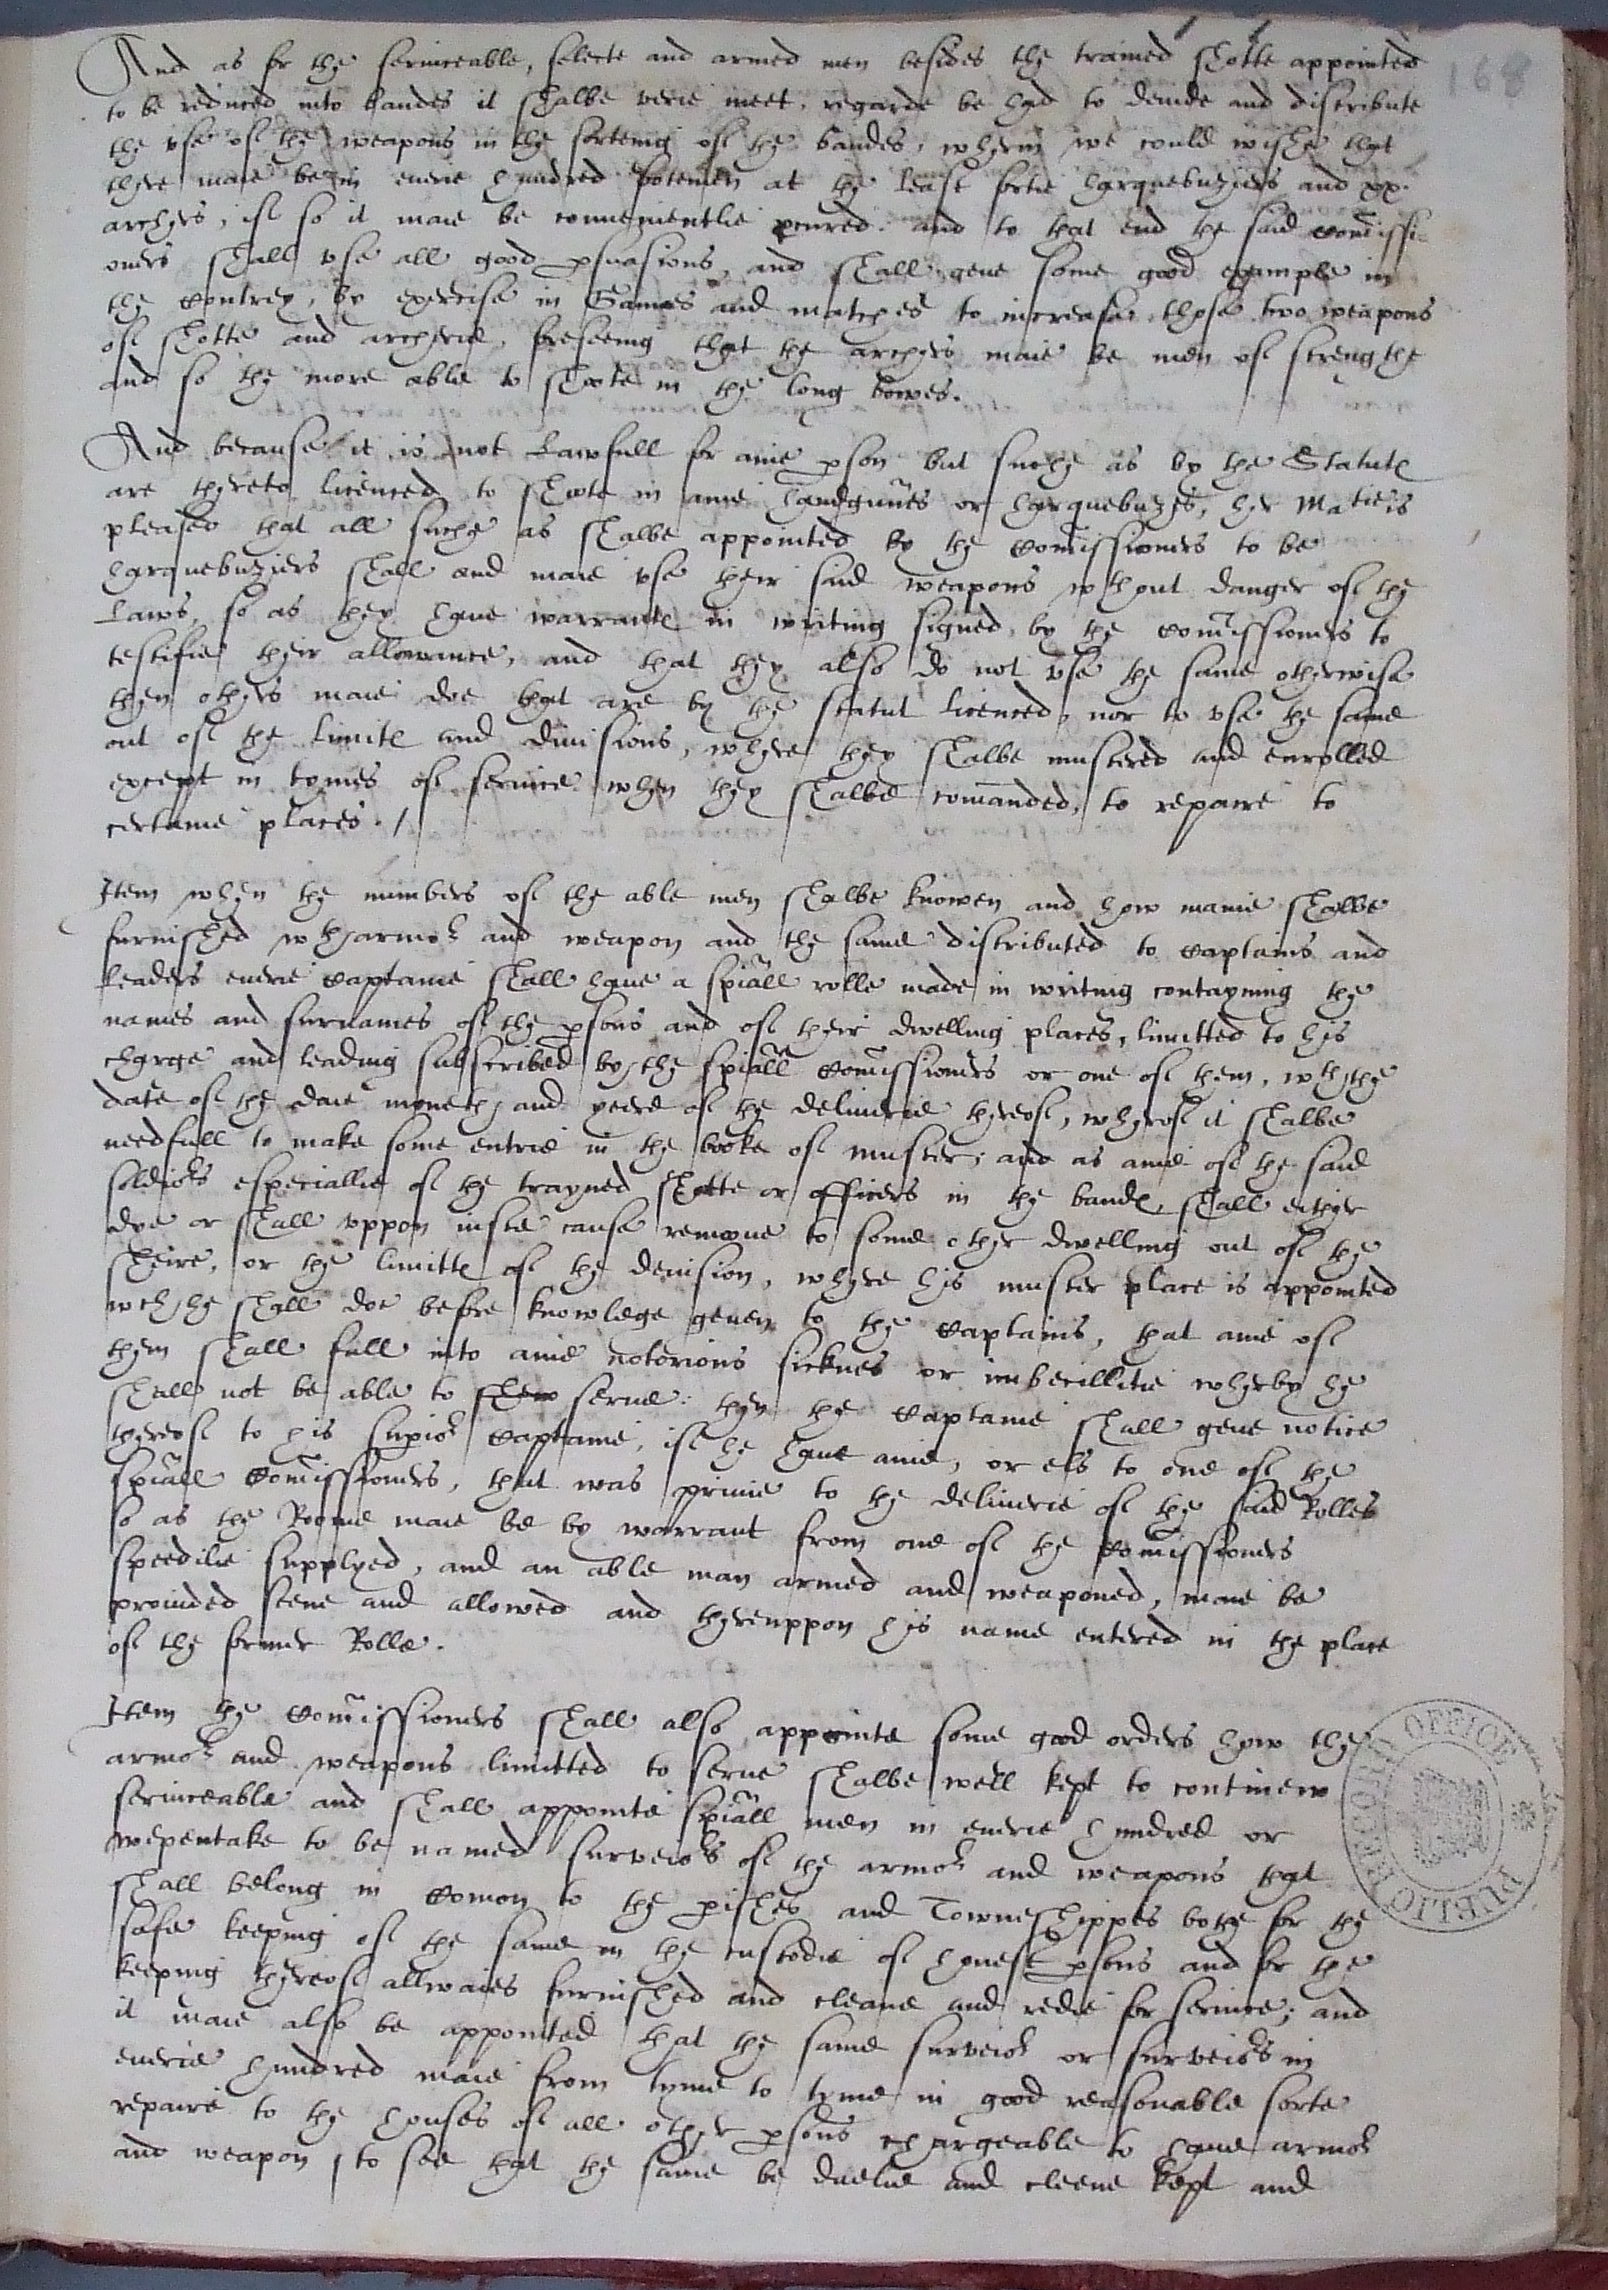 168
And as for the serviceable, selecte and armed men besides the trained shotte appointed
to be reduced into bandes it shalbe verie meet, regarde be had to deuide and distribute
the vse of the weapons in the sorteing of the bandes, wherin we could wishe that
there maie be in euerie hundred footemen at the least fortie harquebuziers and xx.
archers, if so it maie be convenientlie procured. and to that end the said Comissi-
oners shall vse all good pswasions, and shall geue some good example in
the Contrey, by exercise in Games and matches to increase those two weapons
of shotte and archerie, foreseeing that the archers maie be men of strengthe
and so the more able to shoote in the long bowes.
And because it is not Lawfull for anie pson but suche as by the Statute
are thereto licenced to shoote in anie handgunes or harquebuzes, her Matie is
pleased that all suche as shalbe appointed by the Comissioners to be
harquebuziers shall and maie vse their said weapons wthout danger of the
Laws, so as they haue warrante in writing signed by the Comissioners to
testifie their allowance, and that they also do not vse the same otherwise
then others maie doe that are by the statut licenced, nor to vse the same
out of the limite and diuisions, where they shalbe mustered and enrolled
except in tymes of seruice when they shalbe comanded, to repaire to
certaine places. /
Item when the numbers of the able men shalbe knowen and how manie shalbe
furnished wth armor and weapon and the same distributed to Captains and
leaders euerie Captaine shall haue a spiall rolle made in writing contayning the
names and surnames of the psons and of their dwelling places, limitted to his
charge and leading subscribed by the spiall Comissioners or one of them, wth the
date of the daie moneth and yeere of the deliuerie thereof, wherof it shalbe
needfull to make some entrie in the booke of muster; and as anie of the said
soldiors especiallie of the trayned shotte or officers in the bande, shall either
dye or shall vppon iuste cause remoue to some other dwelling out of the
sheire, or the limitte of the deuision, where his muster place is appointed
wch he shall doe before knowlege geuen to the Captains, that anie of
them shall fall into anie notorious sicknes or imbecillitie wherby he
shall not be able to shew serue: then the Captaine shall geue notice
thereof to his supior Captaine, if he haue anie, or els to one of the
spiall Comissioners, that was priuie to the deliuerie of the said Rolles
so as the Roome maie be by warrant from one of the Comissioners
speedilie supplyed, and an able man armed and weaponed, maie be
prouided seene and allowed and therevppon his name entered in the place
of the former Rolle.
Item the Comissioners shall also appointe some good orders how the
armor and weapons limitted to serue shalbe well kept to continew
seruiceable and shall appointe spiall men in euerie hundred or
wepentake to be named surveiors of the armor and weapons that
shall belong in Comon to the pishes and Towneshippes bothe for the
safe keeping of the same in the custodie of honest psons and for the
keeping thereof allwaies furnished and cleane and redie for seruice; and
it maie also be appointed that the same surveior or surveiors in
euerie hundred maie from tyme to tyme in good reasonable sorte
repaire to the houses of all other psons chargeable to haue armor
and weapon, to see that the same be duelie and cleene kept and
PUBLIC RECORD OFFICE